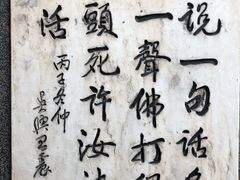 说一句話
一聲佛打
頭死许汝
活
丙子冬仲
吳興王震